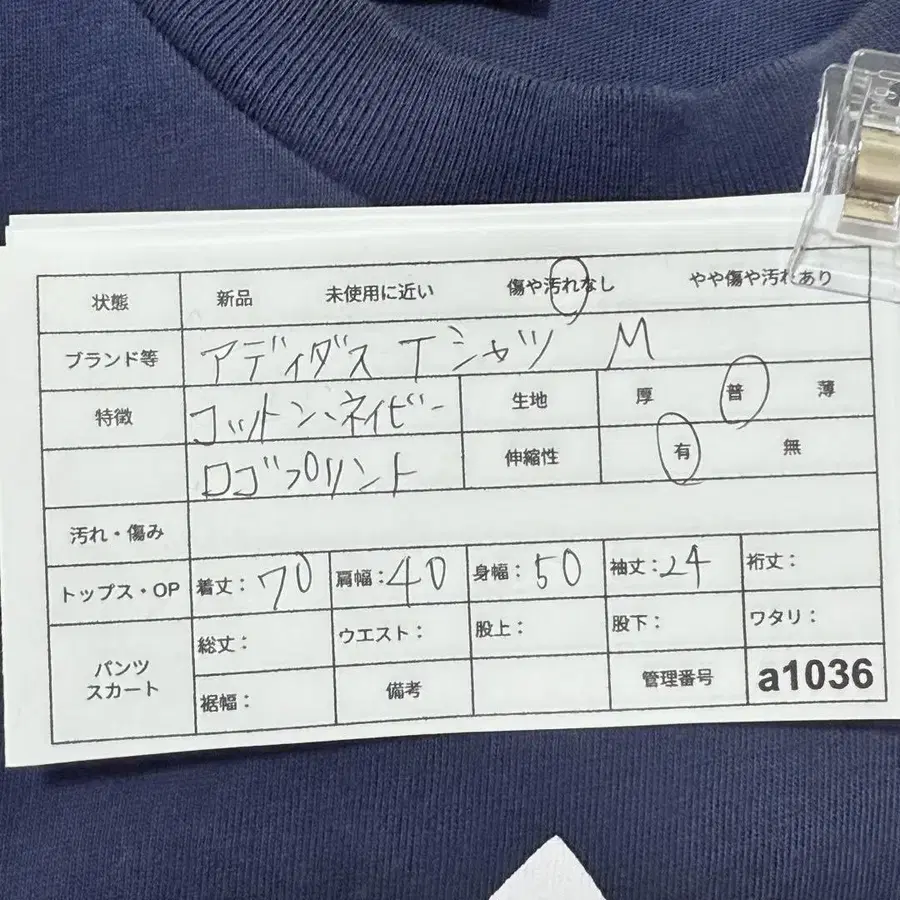 状態 新品 未使用に近い 傷や汚れなし やや傷や汚れあり
ブランド等 アディダス Tシャツ M
特徴 コットン、ネイビー 生地 厚 普 薄
ロゴプリント 伸縮性 有 無
汚れ・傷み
トップス・OP 着丈：70 肩幅：40 身幅：50 袖丈：24 裄丈：
パンツ スカート 総丈： ウエスト： 股上： 股下： ワタリ：
裾幅： 備考 管理番号 a1036